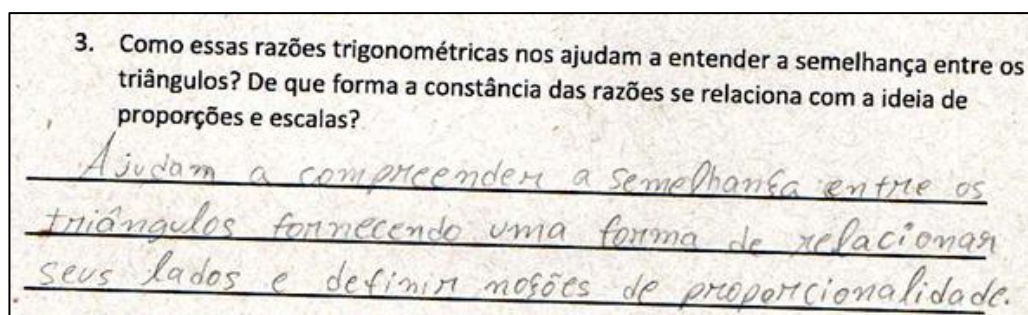 3. Como essas razões trigonométricas nos ajudam a entender a semelhança entre os
triângulos? De que forma a constância das razões se relaciona com a ideia de
proporções e escalas?
Ajudam a compreender a semelhança entre os
triângulos fornecendo uma forma de relacionar
seus lados e definir noções de proporcionalidade.